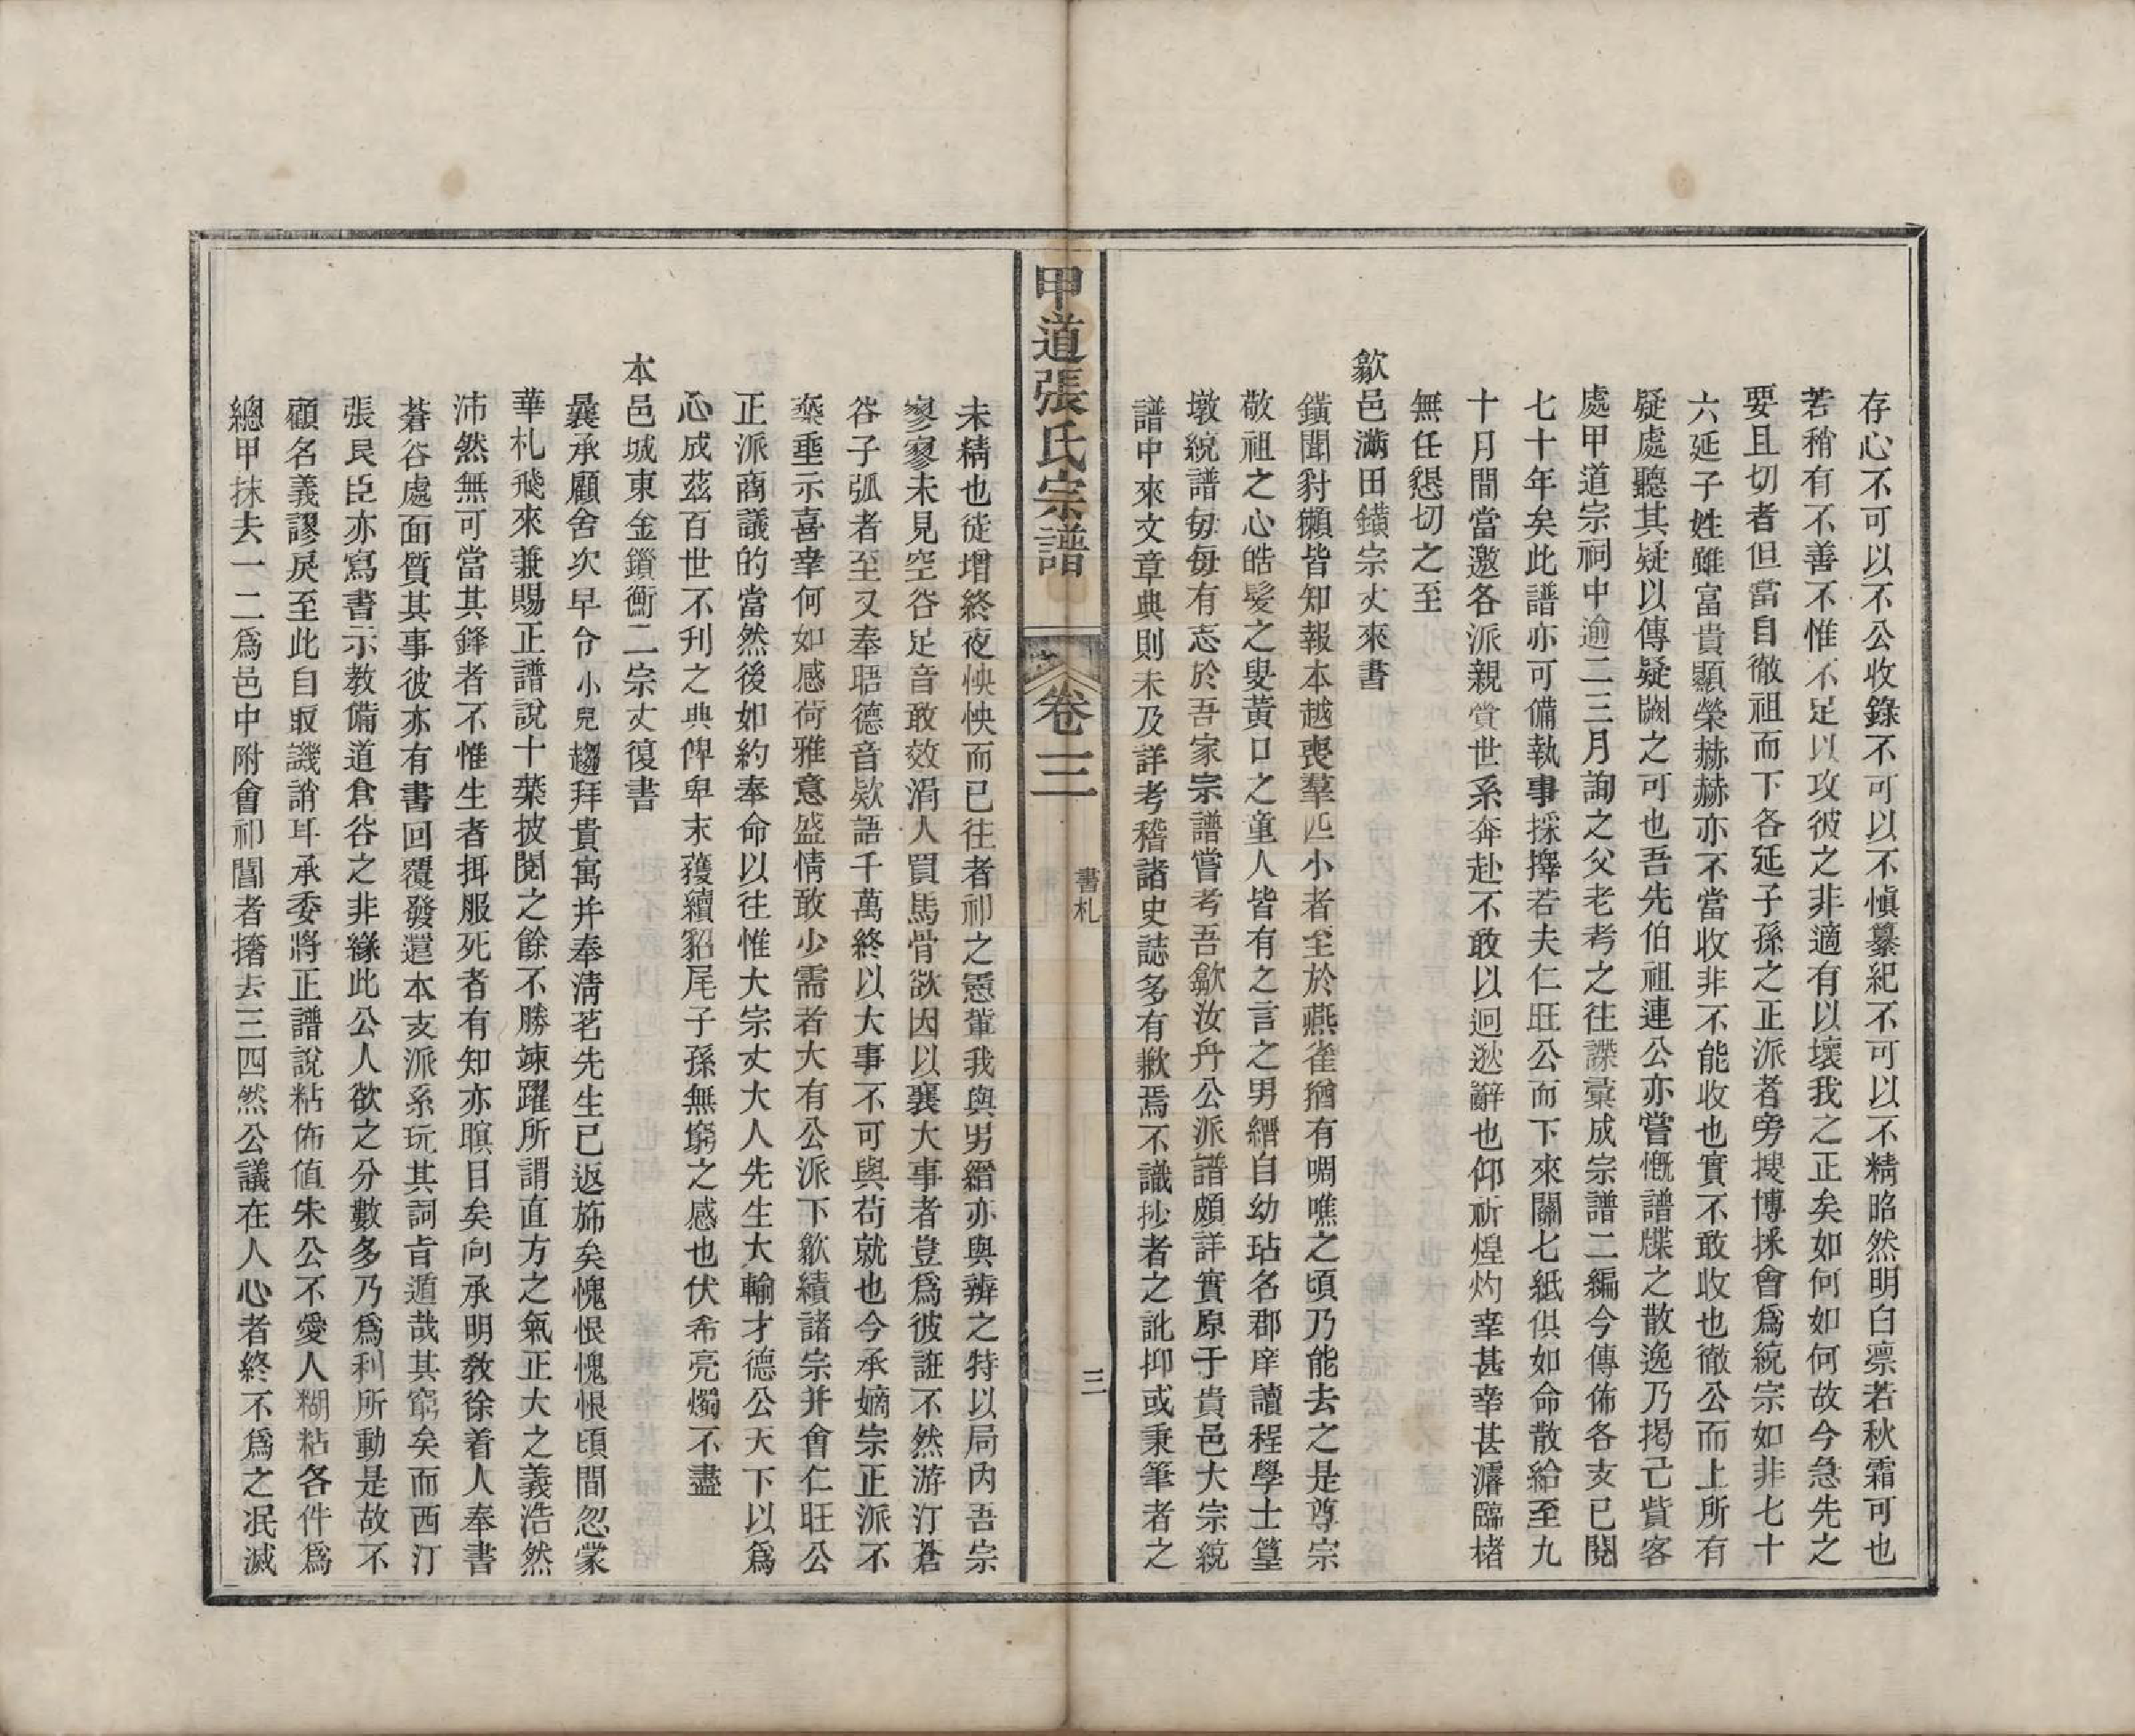 存心不可以不公收錄不可以不愼纂紀不可以不精昭然明白凛若秋霜可也
若稍有不善不惟不足以攻彼之非適有以壞我之正矣如何如何故今急先之
要且切者但當自徹祖而下各延子孫之正派者旁搜博採會爲統宗如非七十
六延子姓雖富貴顯榮赫赫亦不當收非不能收也實不敢收也徹公而上所有
疑處聽其疑以傳疑闕之可也吾先伯祖連公亦嘗慨譜牒之散逸乃揭己貲客
處甲道宗祠中逾二三月詢之父老考之往諜彙成宗譜二編今傳佈各支已閱
七十年矣此譜亦可備執事採擇若夫仁旺公而下來關七紙俱如命散給至九
十月間當邀各派親賫世系奔赴不敢以迥逖辭也仰祈煌灼幸甚幸甚濬臨楮
無任懇切之至
歙邑滿田鐄宗丈來書
鐄聞豺獺皆知報本越喪羣匹小者至於燕雀猶有啁噍之頃乃能去之是尊宗
敬祖之心皓髮之叟黃口之童人皆有之言之男縉自幼玷名郡庠讀程學士篁
墩統譜每每有志於吾家宗譜嘗考吾歙汝舟公派譜頗詳實原于貴邑大宗統
譜中來文章典則未及詳考稽諸史誌多有歉焉不識抄者之訛抑或秉筆者之
甲道張氏宗譜
卷三
書札
三
未精也徒增終夜怏怏而已往者祁之慝輩我與男縉亦與辨之特以局內吾宗
寥寥未見空谷足音敢效涓人買馬骨欲因以襄大事者豈爲彼誑不然游汀蒼
谷子弧者至又奉晤德音欵語千萬終以大事不可與苟就也今承嫡宗正派不
棄垂示喜幸何如感荷雅意盛情敢少需者大有公派下歙績諸宗并會仁旺公
正派商議的當然後如約奉命以往惟大宗丈大人先生大輸才德公天下以爲
心成茲百世不刋之典俾卑末獲續貂尾子孫無窮之感也伏希亮燭不盡
本邑城東金鎻衝二宗丈復書
曩承顧舍次早令小兒趨拜貴寓幷奉淸茗先生已返斾矣愧恨愧恨頃間忽蒙
華札飛來兼賜正譜說十葉披閱之餘不勝竦躍所謂直方之氣正大之義浩然
沛然無可當其鋒者不惟生者拑服死者有知亦瞑目矣向承明敎徐着人奉書
蒼谷處面質其事彼亦有書回覆發還本支派系玩其詞旨遁哉其窮矣而西汀
張良臣亦寫書示教備道倉谷之非緣此公人欲之分數多乃爲利所動是故不
顧名義謬戾至此自取譏誚耳承委將正譜說粘佈值朱公不愛人糊粘各件爲
總甲抹去一二爲邑中附會祁閶者撦去三四然公議在人心者終不爲之泯滅